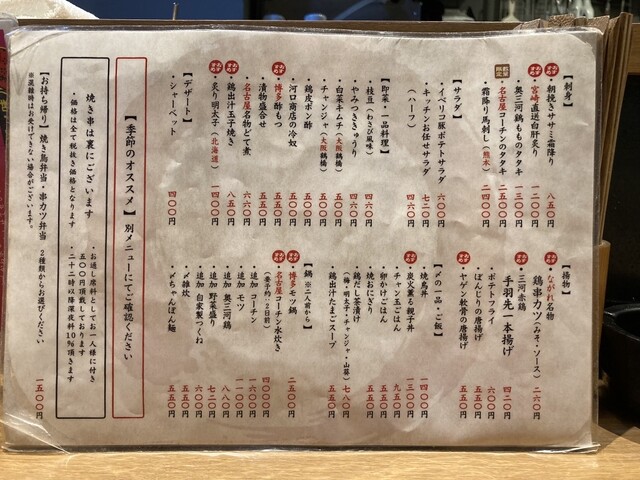 【刺身】
おすすめ
・朝挽きササミ霜降り 八五〇円
おすすめ
・宮崎直送白肝炙り 一二〇〇円
・奥三河鶏もものタタキ 一三〇〇円
・名古屋コーチンのタタキ 二一〇〇円
数量限定
・霜降り馬刺し(熊本) 二四〇〇円
【サラダ】
・イベリコ豚ポテトサラダ 六〇〇円
・キッチンお任せサラダ 七二〇円
(ハーフ) 四六〇円
【即菜・一品料理】
・枝豆(わさび風味) 四六〇円
・やみつききゅうり 四六〇円
・白菜キムチ(大阪鶴橋)
・チャンジャ(大阪鶴橋)
・鶏皮ポン酢
・河口商店の冷奴
おすすめ
・博多酢もつ
・漬物盛合せ 五五〇円
・名古屋名物どて煮 六六〇円
おすすめ
・鶏出汁玉子焼き 八五〇円
おすすめ
・炙り明太子(北海道) 一四〇〇円
【デザート】
・シャーベット 四〇〇円
【揚物】
おすすめ
・ながれ名物
鶏串カツ(みそ・ソース) 二六〇円
おすすめ
・三河赤鶏
手羽先一本揚げ 四二〇円
・ポテトフライ 六〇〇円
・ぼんじりの唐揚げ 五五〇円
・ヤゲン軟骨の唐揚げ 五五〇円
【〆の一品・ご飯】
・焼鳥丼 一四〇〇円
おすすめ
・炭火薫る親子丼 一三〇〇円
・チャン玉ごはん 九五〇円
・卵かけごはん 五五〇円
・焼おにぎり 五五〇円
・鶏だし茶漬け
(梅・明太子・チャンジャ・山葵) 七八〇円
・鶏出汁たまごスープ 五五〇円
【鍋】※二人前から
おすすめ
・博多モツ鍋 二五〇〇円
おすすめ
・名古屋コーチン水炊き 四〇〇〇円
(要予約:2日前)
・追加 コーチン 一六〇〇円
・追加 モツ 一一〇〇円
・追加 奥三河鶏 八八〇円
・追加 野菜盛り 七二〇円
・追加 自家製つくね 六〇〇円
・〆雑炊 五五〇円
・〆ちゃんぽん麺 五五〇円
【季節のオススメ】別メニューにてご確認ください
焼き串は裏にございます
・価格は全て税抜き価格となります
・お通し席料としてお一人様に付き
五〇〇円頂戴しております
・二十二時以降深夜料10%頂きます
【お持ち帰り】焼き鳥弁当・串カツ弁当 2種類からお選びください 一五〇〇円
※混雑時はお受けできない場合がございます。